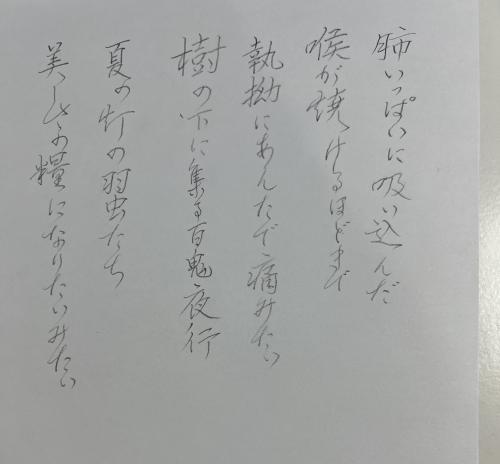 肺いっぱいに吸い込んだ
喉が焼けるほどまで
執拗にあんたで痛みたい
樹の下に集る百鬼夜行
夏の灯の羽虫たち
美しさの糧になりたいみたい